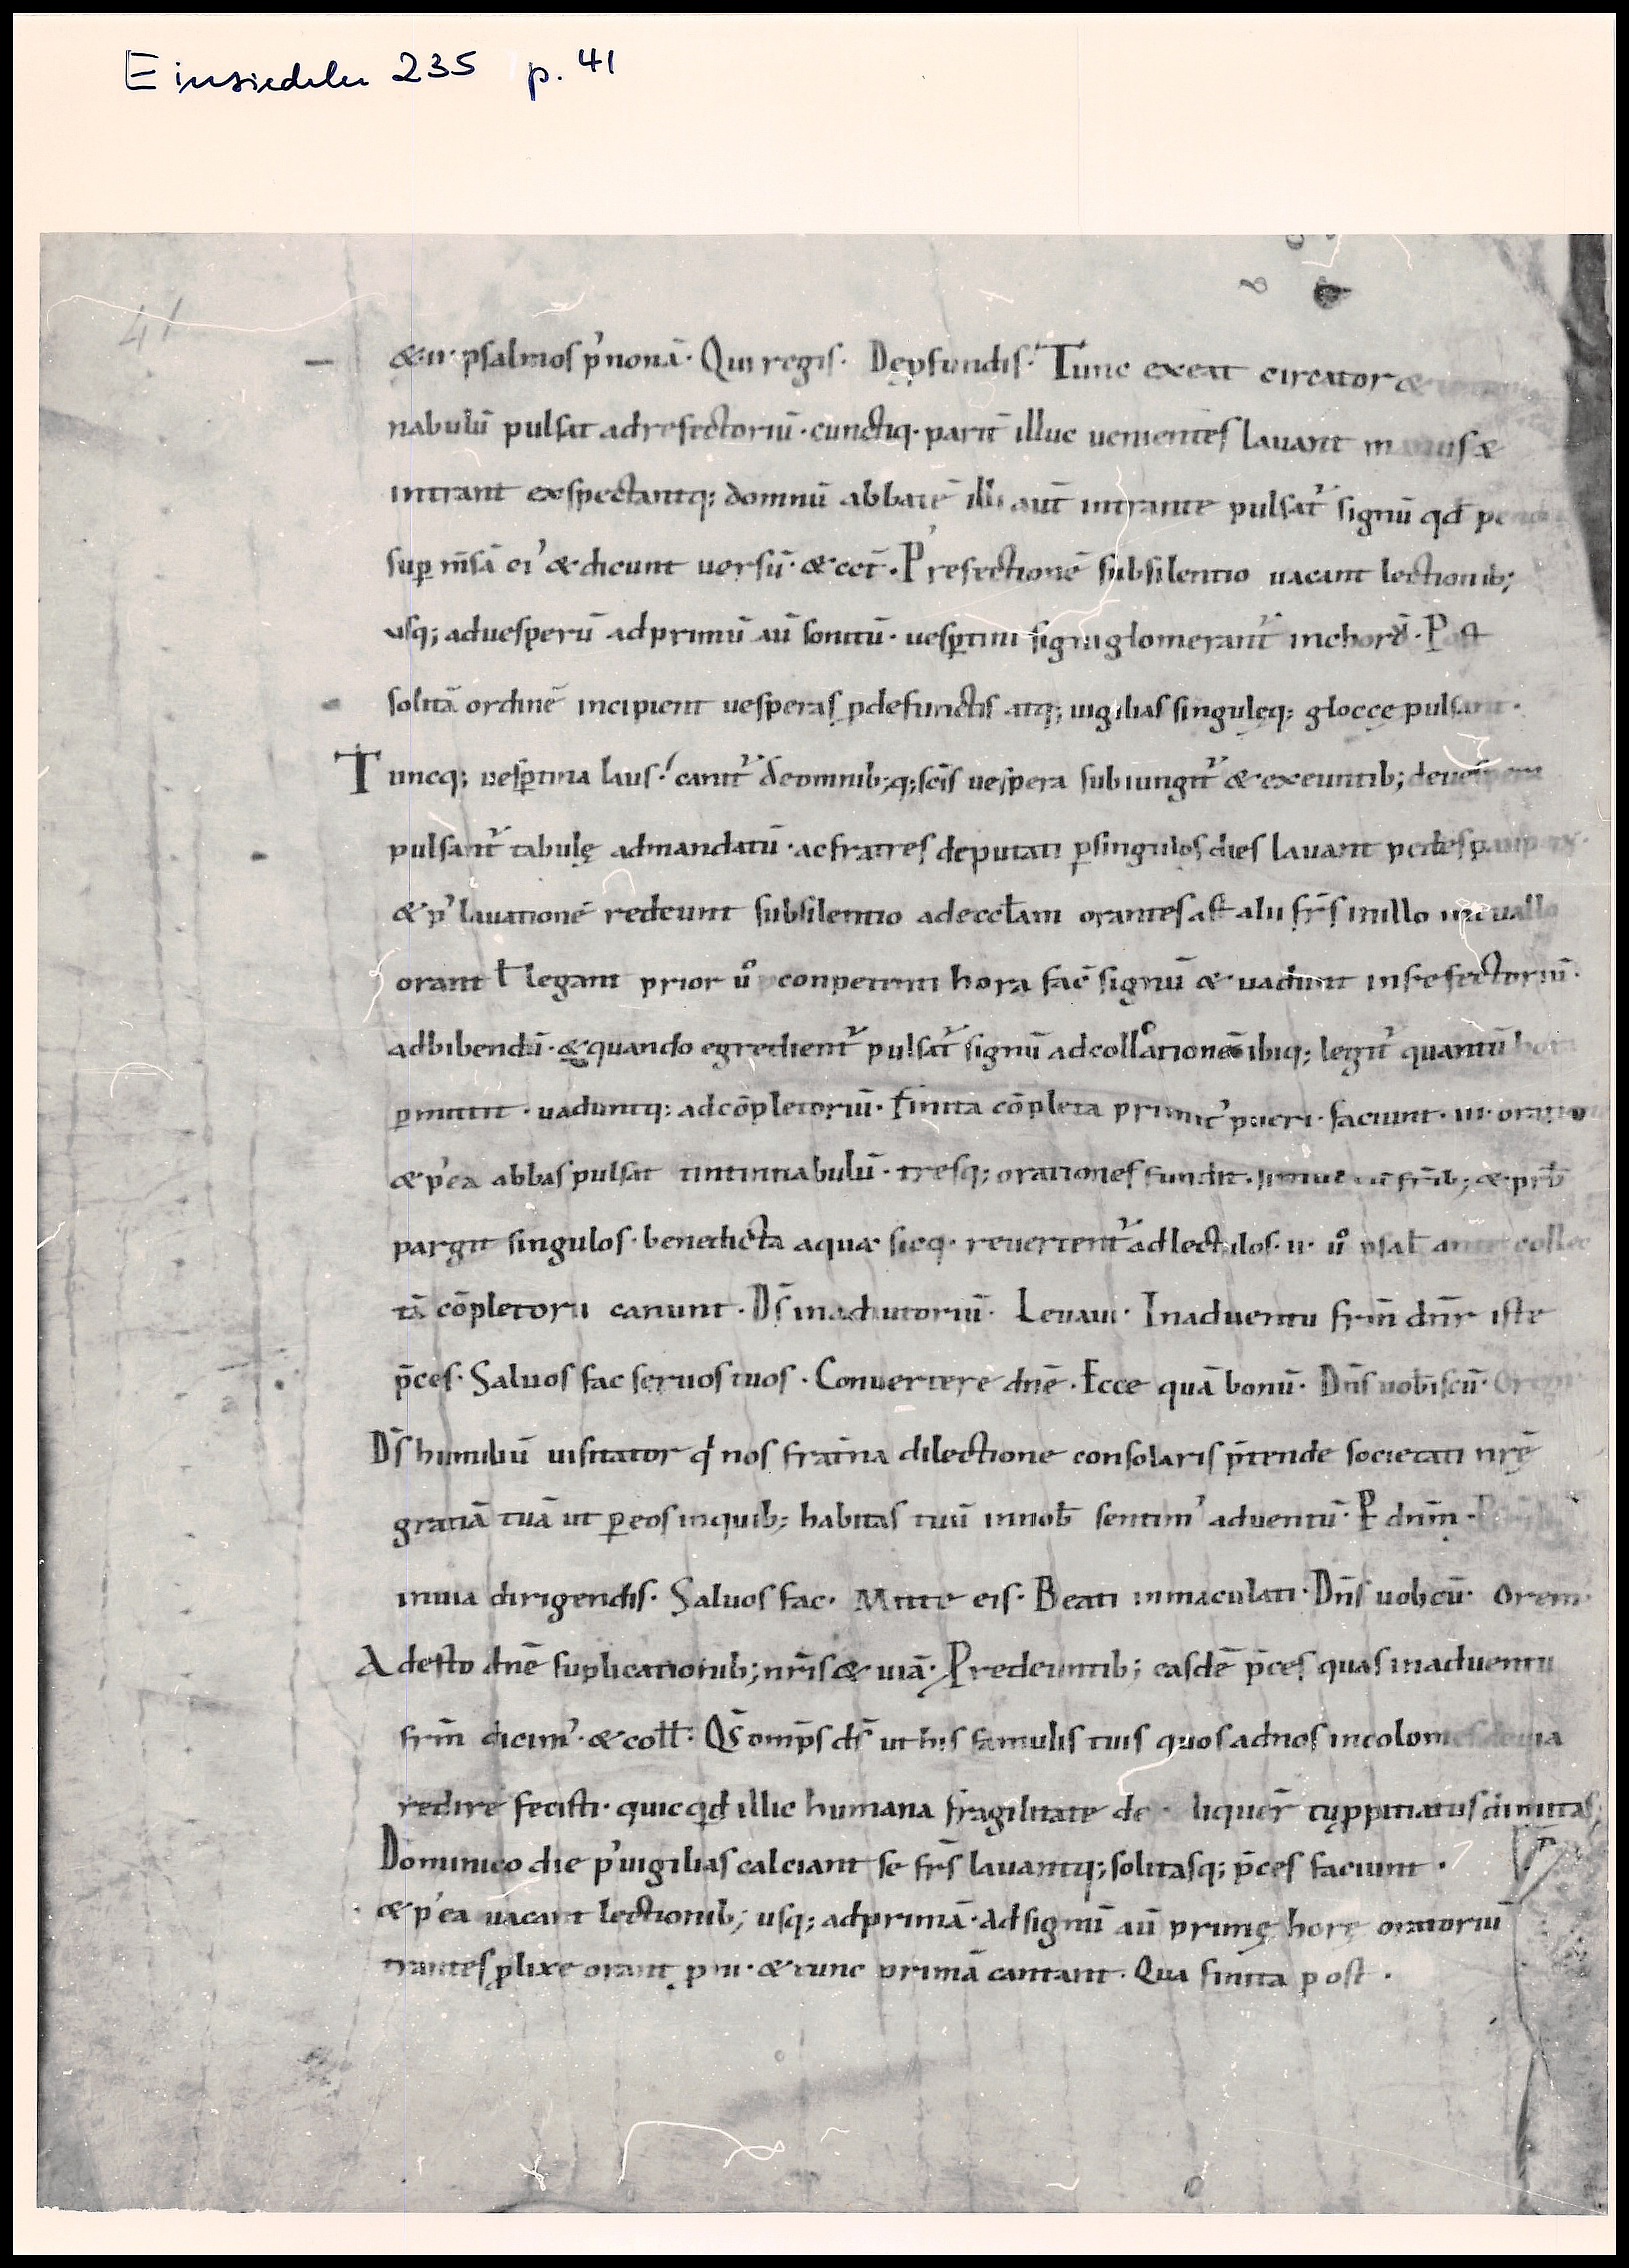 Einsiedeln 235 p. 41
41
&·ii· psalmos p' nonā· Qui regis· De pfundis·' Tunc exeat circator &
nabulū pulsat ad refectoriū· cunctiq· parit̄ illuc uenientes lauant manus &
intrant exspectantq; domnū abbatē illi aut̄ intrante pulsat᷑ signū qđ
sup m̄sā ei' & dicunt uersū· & cet̄· P' refectionē sub silentio uacant lectionib;
usq; ad uesperū ad primū aū sonitū· uesptini signi glomerant᷑ in chorō· Post
solitā ordinē incipient uesperas p defunctis atq; uigilias singulęq; gloccę pulsant·
Tuncq; uesptina laus·' canit᷑ de omnib;q; scīs uespera subiungit᷑ & exeuntib; de uespera
pulsant᷑ tabulę ad mandatū· ac fratres deputati p singulos dies lauant pedes
& p' lauationē redeunt sub silentio ad eccłam orantes ast alii fr̄s in illo int̄uallo
orant ł legant prior ů conpetenti hora fac̄ signū & uadunt in refectoriū·
ad bibendū· & quando egredient᷑ pulsat᷑ signū ad collationē ibiq; legit᷑ quantū hora
pmittit· uaduntq; ad cōpletoriū· finita cōpleta primit' pueri· faciunt· iii· oration
& p' ea abbas pulsat tintinnabulū· tresq; orationes fundit· simul cū fr̄ib; & prb̄
pargit singulos· benedicta aqua· sicq· reuertent᷑ ad lectulos· ii· ů psal̄ ante collec
tā cōpletorii canunt· Ds̄ in adiutoriū· Leuaui· In aduentu frm̄ dn̄r iste
p̄ces· Saluos fac seruos tuos· Conuertere dnē· Ecce quā bonū· Dn̄s uobiscū·
Ds̄ humiliū uisitator q nos frat̄na dilectione consolaris p̄tende societati nrę̄
gratiā tuā ut p eos in quib; habitas tuū in nob̄ sentim' aduentū· P dnm̄·
in uia dirigendis· Saluos fac· Mitte eis· Beati inmaculati· Dn̄s uobcū· Orem·
Adesto dnē suplicationib; nr̄is & uiā· P' redeuntib; easdē p̄ces quas in aduentu
frm̄ dicim'· & coll̄· Qs̄ omp̄s ds̄ ut his famulis tuis quos ad nos incolomes de uia
redire fecisti· quicqđ illic humana fragilitate de · liquer̄ tu ppitiatus dimittas;
Dominico die p' uigilias calciant se fr̄s lauantq; solitasq; p̄ces faciunt·
& p' ea uacant lectionib; usq; ad primā· Ad signū aū primę horę oratoriū
trantes plixe orant p iii· & tunc primā cantant· Qua finita post·